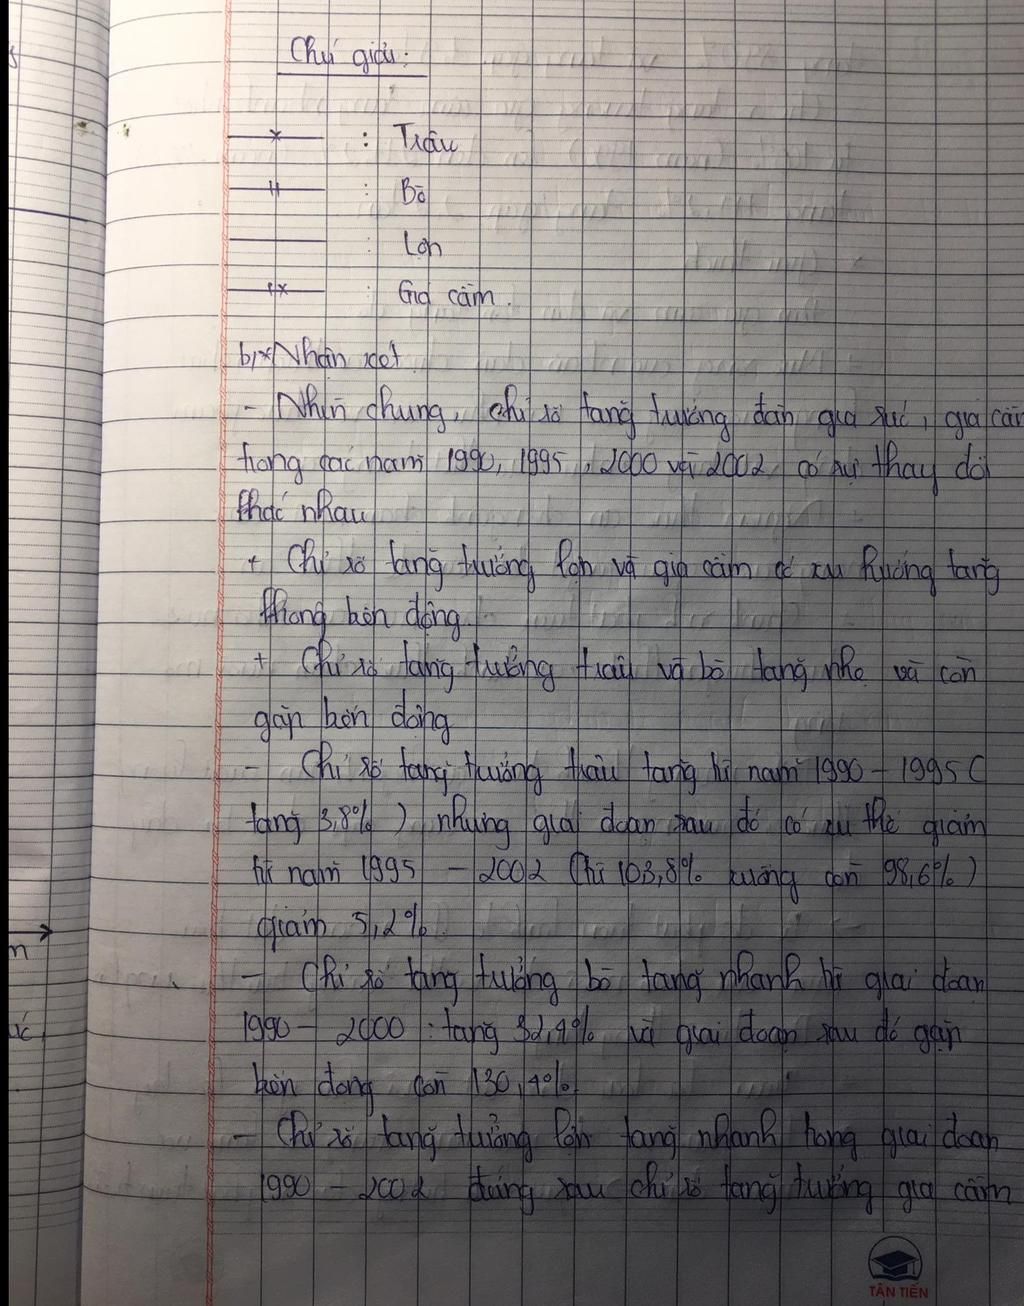 Chú giải:
: Trâu
: Bò
: Lợn
: Gia cầm.
b, * Nhận xét
- Nhìn chung, chỉ số tăng trưởng đàn gia súc, gia cầm
trong các năm 1990, 1995, 2000 và 2002 có sự thay đổi
khác nhau
+ Chỉ số tăng trưởng lợn và gia cầm có xu hướng tăng
không biến động
+ Chỉ số tăng trưởng trâu và bò tăng nhẹ và còn
gặp biến động
- Chỉ số tăng trưởng trâu tăng từ năm 1990 - 1995 (
tăng 3,8%) nhưng giai đoạn sau đó có xu thế giảm
từ năm 1995 - 2002 (từ 103,8% xuống còn 98,6%)
giảm 5,2%
- Chỉ số tăng trưởng bò tăng nhanh từ giai đoạn
1990 - 2000: tăng 32,4% và giai đoạn sau đó gặp
biến động còn 130,4%
- Chỉ số tăng trưởng lợn tăng nhanh trong giai đoạn
1990 - 2002 đứng sau chỉ số tăng trưởng gia cầm
TÂN TIẾN